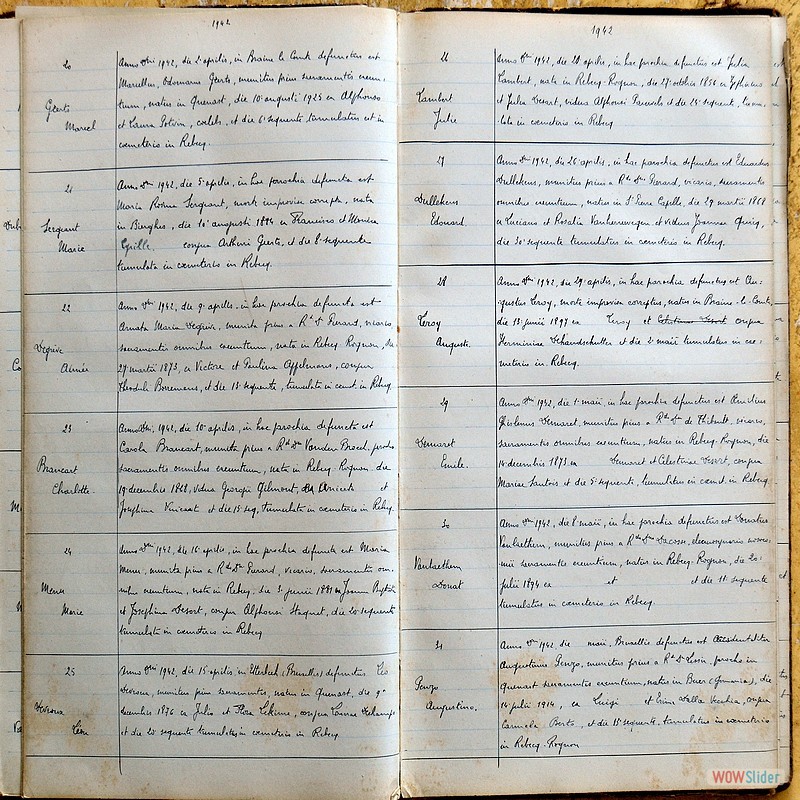 1942
20
Geerts
Marcel
Anno Dni 1942, die 2 aprilis, in Braine le Comte defunctus est
Marcellus, Odomarus Geerts, munitus prius sacramentis exeun-
tium, natus in Quenast, die 10 augusti 1925 ex Alphonso
et Laura Potvin, coelebs, et die 6 sequente tumulatus est in
coemeterio in Rebecq.
21
Sergeant
Marie
Anno Dni 1942, die 5 aprilis, in hac parochia defuncta est
Maria Rosina Sergeant, morte improvisa correpta, nata
in Bierghes, die 10 augusti 1884 ex Francisco et Monica
conjux Arthuri Geerts, et die 8 sequente
tumulata in coemeterio in Rebecq.
22
Degrève
Aimée
Anno Dni 1942, die 9 aprilis, in hac parochia defuncta est
Amata Maria Degrève, munita prius a Rdo D. Pierard, vicario
sacramentis omnibus exeuntium, nata in Rebecq Rognon, die
27 martii 1873, ex Victore et Paulina Appelmans, conjux
Theophili Borremans, et die 13 sequente, tumulata in coemet. in Rebecq
23
Brancart
Charlotte
Anno Dni 1942, die 10 aprilis, in hac parochia defuncta est
Carola Brancart, munita prius a Rdo Dno Vanden Broeck, parocho
sacramentis omnibus exeuntium, nata in Rebecq-Rognon die
19 decembris 1868, vidua Georgii Gilmont, ex et
Josephina Vincent et die 15 seq. tumulata in coemeterio in Rebecq.
24
Meurs
Marie
Anno Dni 1942, die 16 aprilis, in hac parochia defuncta est Maria
Meurs, munita prius a Rdo D. Pierard, vicario, sacramentis om-
nibus exeuntium, nata in Rebecq, die 5 junii 1881 ex Joanne Baptista
et Josephina Desort, conjux Alphonsi Staquet, die 20 sequente
tumulata in coemeterio in Rebecq
25
Léon
Anno Dni 1942, die 15 aprilis, in Etterbeek (Bruxellis) defunctus Leo
munitus prius sacramentis, natus in Quenast, die 9
decembris 1896 ex Julio et Flora Lekime, conjux Laurae Dechamps
et die 20 sequente tumulatus in coemeterio in Rebecq.
1942
26
Lambert
Julie
Anno Dni 1942, die 20 aprilis, in hac parochia defuncta est Julia
Lambert, nata in Rebecq-Rognon, die 27 octobris 1856 ex Zephirino
et Julia Desart, vidua Alphonsi Pauwels et die 24 sequente, tumu-
lata in coemeterio in Rebecq.
27
Dullekens
Edouard.
Anno Dni 1942, die 26 aprilis, in hac parochia defunctus est Eduardus
Dullekens, munitus prius a Rdo Dno Pierard, vicario, sacramentis
omnibus exeuntium, natus in St Laure Capelle, die 29 martii 1868
ex Luciano et Rosalia Vanherrewegen et viduus Joannae
die 30 sequente tumulatus in coemeterio in Rebecq.
28
Leroy
Auguste.
Anno Dni 1942, die 29 aprilis, in hac parochia defunctus est Au-
gustus Leroy, morte improvisa correptus, natus in Braine-le-Comte,
die 13 junii 1897 ex Leroy et conjux
Herminiae Vehandschutter et die 2 maii tumulatus in coe-
meterio in Rebecq.
29
Demaret
Emile.
Anno Dni 1942, die 1 maii, in hac parochia defunctus est Aemilius
Ghislenus Demaret, munitus prius a Rdo Dno de Thibault, vicario,
sacramentis omnibus exeuntium, natus in Rebecq Rognon, die
14 decembris 1873 ex Demaret et Celestinae Desort, conjux
Mariae Lautois et die 5 sequenti, tumulatus in coemet. in Rebecq
30
Vanhaethem
Donat
Anno Dni 1942, die 8 maii, in hac parochia defunctus est Donatus
Vanhaethem, munitus prius a Rdo Dno Dacosse,
sacramentis exeuntium, natus in Rebecq-Rognon, die 20
julii 1894 ex et et die 11 sequente
tumulatus in coemeterio in Rebecq.
31
Penzo
Augustino.
Anno Dni 1942, die maii, Bruxellis defunctus est accidentaliter
Augustinus Penzo, munitus prius a Rdo D. parocho in
Quenast sacramentis exeuntium, natus in Buer (Germania), die
14 julii 1914, ex Luigi et Erina Dalla Vecchia, conjux
Carmela Berto, et die 15 sequente, tumulatus in coemeterio
in Rebecq-Rognon
WOWSlider